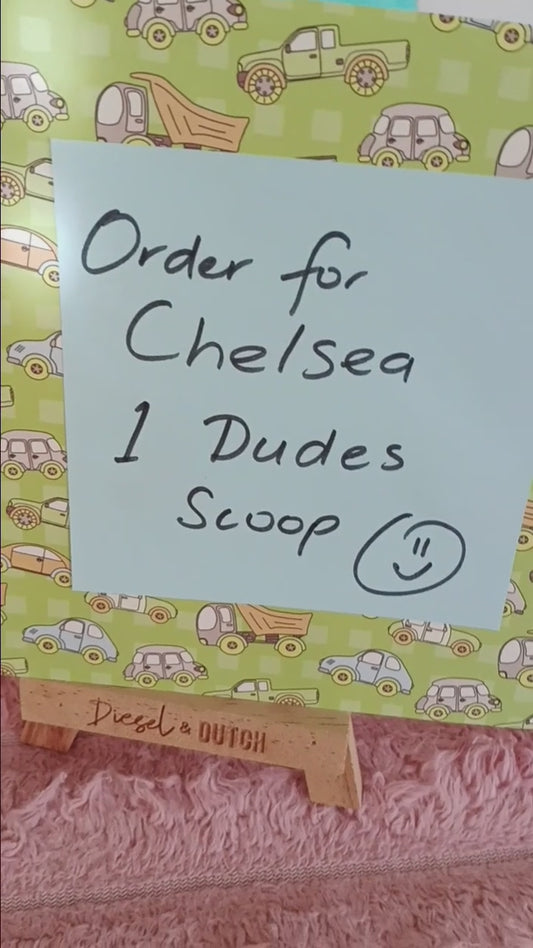 Order for
Chelsea
1 Dudes
Scoop
Diesel & DUTCH